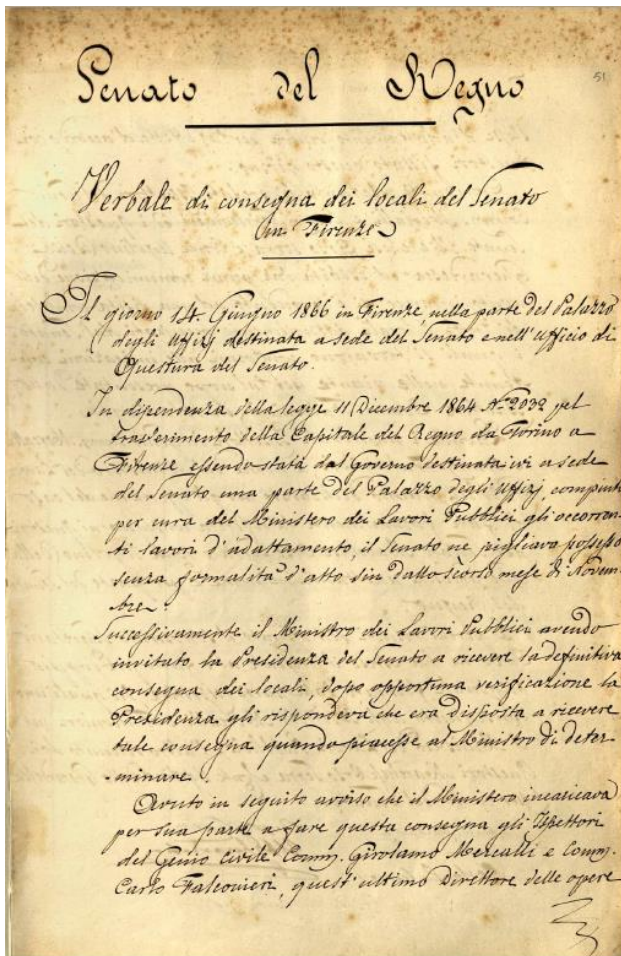 51
Senato del Regno
Verbale di consegna dei locali del Senato
in Firenze
Il giorno 14. Giugno 1866 in Firenze, nella parte del Palazzo
degli Uffizj destinata a sede del Senato e nell'Ufficio di
Questura del Senato.
In dipendenza della legge 11 Dicembre 1864 No. 2032 pel
trasferimento della Capitale del Regno da Torino a
Firenze essendo stata dal Governo destinata ivi a sede
del Senato una parte del Palazzo degli Uffizj, compiuti
per cura del Ministero dei Lavori Pubblici gli occorren-
ti lavori d'adattamento, il Senato ne pigliava possesso
senza formalità d'atto sin dallo scorso mese di Novem-
bre.
Successivamente il Ministro dei Lavori Pubblici avendo
invitato la Presidenza del Senato a ricevere la definitiva
consegna dei locali, dopo opportuna verificazione la
Presidenza gli rispondeva che era disposta a ricevere
tale consegna quando piacesse al Ministro di deter-
-minare.
Avuto in seguito avviso che il Ministero incaricava
per sua parte a fare questa consegna gli Ispettori
del Genio Civile Comm. Girolamo Mercalli e Comm.
Carlo Falconieri, quest'ultimo Direttore delle opere